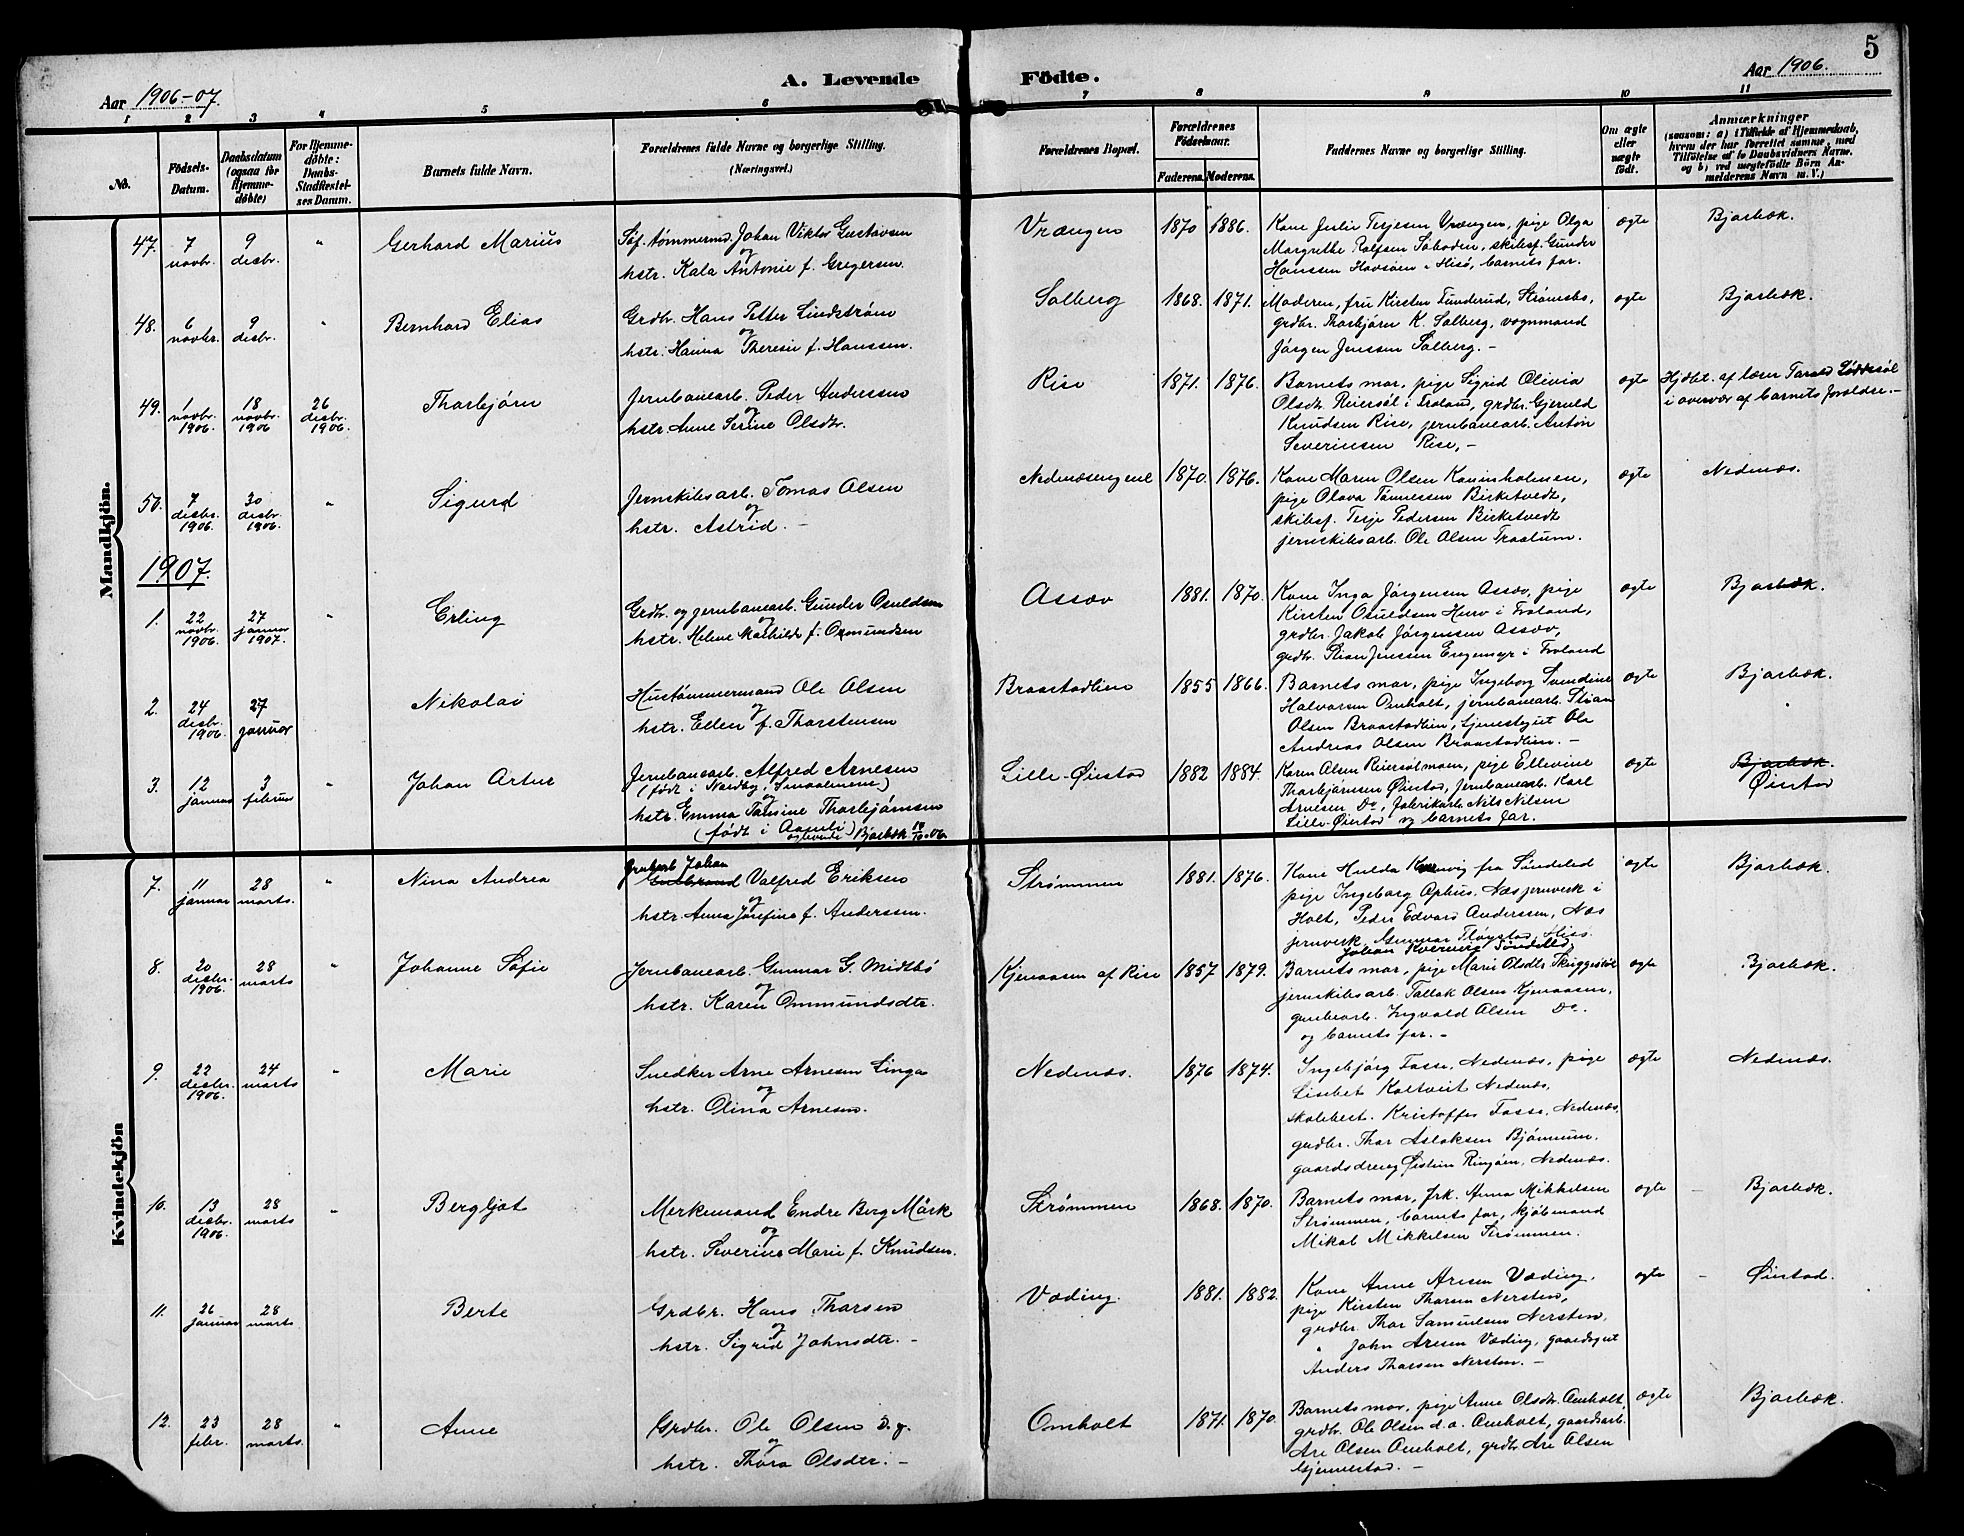 5
Aar 1906-07.
A. Levende Födte.
Aar 1906.
1 2 3 4 5 6 7 8 9 10 11
No.
Födsels-Datum.
Daabsdatum (ogsaa for Hjemmedøbte)
For Hjemmedøbte: Daabs-Stadfæstelses Datum.
Barnets fulde Navn.
Forældrenes fulde Navne og borgerlige Stilling.
(Næringsvei.)
Forældrenes Bopæl.
Forældrenes Födselsaar.
Faderens. Moderens.
Faddernes Navne og borgerlige Stilling.
Om ægte eller uægte født.
Anmærkninger
(saasom: a) i Tilfælde af Hjemmedaab, hvem der har forrettet samme, med Tilföielse af to Daabsvidners Navne, og b) ved uægtefødte Börn Anmelderens Navn m. V.)
Mandkjön.
47. 7 novbr. 9 desbr. " Gerhard Marius
Søf. tømmermd. Johan Viktor Gustavsen
og
hstr. Kala Antonie f. Gregersen.
Vrængen 1870 1886.
Kone Julie Terjesen Vrængen, pige Olga
Margrethe Rolfsen Saboden, skibsf. Gunder
Hanssen Havsøen i Hisø, barnets far.
ægte Bjorbæk.
48. 6 novbr. 9 desbr. " Bernhard Elias
Grdbr. Hans Petter Lindstrøm
og
hstr. Hanna Theresie f. Hanssen.
Solberg 1868. 1871.
Moderen, fru Kirsten Tunderud, Strømsbo,
grdbr. Thorbjørn K. Solberg, vognmand
Jørgen Jenssen Solberg. -
ægte Bjorbæk.
49. 1 novbr. 1906 18 novbr. 1906 26 desbr. 1906. Thorbjørn
Jernbanearb. Peder Anderssen
og
hstr. Anne Serine Olsdtr.
Rise 1871. 1876.
Barnets mor, pige Sigrid Olivia
Olsdtr. Reiersøl i Froland, grdbr. Gjeruld
Knudsen Rise, jernbanearb. Anton
Severinsen Rise, -
ægte Hjdbt. af lærer Tarald Løddesøl
i overvær af barnets forældre. -
50. 7 desbr. 1906 30 desbr. 1906. " Sigurd
Jernskibsarb. Tomas Olsen
og
hstr. Astrid. -
Nedenæsengene 1870. 1876.
Kone Maren Olsen Kaninholmen,
pige Olava Tønnessen Birketvedt,
skibsf. Terje Pedersen Birketvedt
jernskibsarb. Ole Olsen Traatum.
ægte Nedenæs.
1907.
1. 22 novbr. 1906 27 januar 1907. " Erling
Grdbr. og jernbanearb. Gunder Osuldsen
og
hstr. Helene Mathilde f. Osmundsen
Assæv 1881. 1870.
Kone Inga Jørgensen Assæv, pige
Kirsten Osuldsen Heuv i Froland,
grdbr. Jakob Jørgensen Assæv,
grdbr. Stian Jenssen Engemyr i Froland
ægte Bjorbæk.
2. 24 desbr. 1906 27 januar " Nikolai
Hustømmermand Ole Olsen
og
hstr. Ellen f. Thorstensen
Braastadlien 1855 1866.
Barnets mor, pige Ingeborg Svendine
Halvorsen Omholt, jernbanearb. Stian
Olsen Braastadlien, tjenestegut Ole
Andreas Olsen Braastadlien. -
ægte Bjorbæk.
3. 12 januar 3 februar " Johan Artur
Jernbanearb. Alfred Arnesen
(født i Nordby, Smaalenene)
og
hstr. Emma Tomine Thorbjørnsen
(født i Aamli) Bjorbæk 14/10-06
Lille-Øiestad 1882 1884.
Karen Olsen Reiersølmoen, pige Ellevine
Thorbjørnsen Øiestad, Jernbanearb. Karl
Arnesen Do, fabrikarb. Nils Nilsen
Lille-Øiestad og barnets far.
ægte Bjorbæk
Øiestad
Kvindekjön
7. 11 januar 28 marts. " Nina Andrea
grubearb. Johan
Valfred Eriksen
og
hstr. Anna Josefine f. Anderssen.
Strømmen 1881. 1876.
Kone Hulda Kvernvig fra Søndeled
pige Ingeborg Ophus, Næs jernverk i
Holt, Peder Edvard Anderssen, Næs
jernverk, Gunnar Fløystad, Hiss.
Johan Kvernvig Søndeled.
ægte Bjorbæk.
8. 20 desbr. 1906 28 marts " Johanne Sofie
Jernbanearb. Gunnar G. Midtbø
og
hstr. Karen Ommundsdtr.
Kjenaasen af Rise 1857 1879.
Barnets mor, pige Marie Olsdtr. Skriggestøl
jernskibsarb. Tallak Olsen Kjenaasen,
grubearb. Ingvald Olsen Do.
og barnets far. -
ægte Bjorbæk.
9. 22 desbr. 1906. 24 marts " Marie
Snedker Arne Arnesen Linga
og
hstr. Olina Arnesen.
Nedenæs. 1876 1874.
Ingebjørg Fosse, Nedenæs, pige
Lisebet Koltveit Nedenæs,
skolebest. Kristoffer Fosse, Nedenæs,
grdbr. Thor Aslaksen Bjønnum.
gaardsdreng Øistein Ringøen, Nedenæs.
ægte Nedenæs.
10. 13 desbr. 1906. 28 marts " Bergljot
Merkemand Endre Berg Mörk
og
hstr. Severine Marie f. Knudsen.
Strømmen 1868. 1870.
Barnets mor, frk. Anna Mikkelsen
Strømmen, barnets far, kjøbmand
Mikal Mikkelsen Strømmen.
ægte - Bjorbæk.
11. 26 januar 28 marts. " Berte
Grdbr. Hans Thorsen
og
hstr. Sigrid Johnsdtr. -
Væding. 1881. 1882.
Kone Anne Aresen Væding,
pige Kirsten Thorsen Nersten,
grdbr. Thor Samuelsen Nersten,
" John Aresen Væding, gaardsgut
Anders Thorsen Nersten. -
ægte - Øiestad.
12. 23 febr. 28 marts. " Anne
Grdbr. Ole Olsen d.y.
og
hstr. Thora Olsdtr. -
Omholt 1871. 1870.
Barnets mor, pige Anne Olsdtr. Omholt,
grdbr. Ole Olsen d.æ. Omholt, gaardsarb.
Are Olsen Omholt, grdbr. Are Olsen
Gjennestad. -
ægte Bjorbæk.